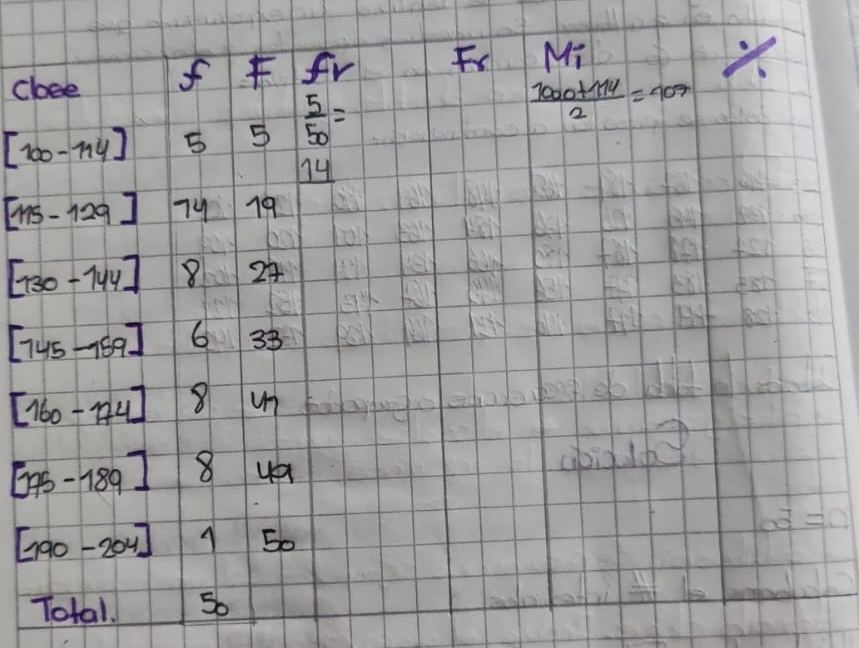 Clase f F fr Fr Mi %
5/50 = 1000+114/2 = 107
[100-114] 5 5
14
[115-129] 14 19
[130-144] 8 27
[145-159] 6 33
[160-174] 8 41
[175-189] 8 49
[190-204] 1 50
Total. 50